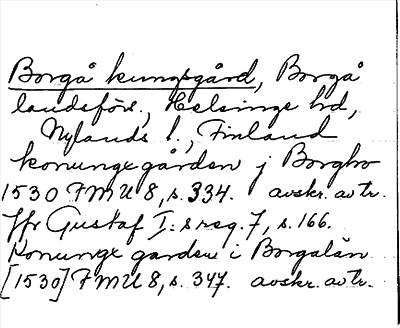 Borgå kungsgård, Borgå
landsförs., Helsinge hd,
Nylands l., Finland
konunge gården j Borgho
1530 FMU 8, s. 334. avskr. av tr.
Jfr Gustaf I:s reg. 7, s. 166.
Konunge garden i Borgalän
[1530] FMU 8, s. 347. avskr. av tr.